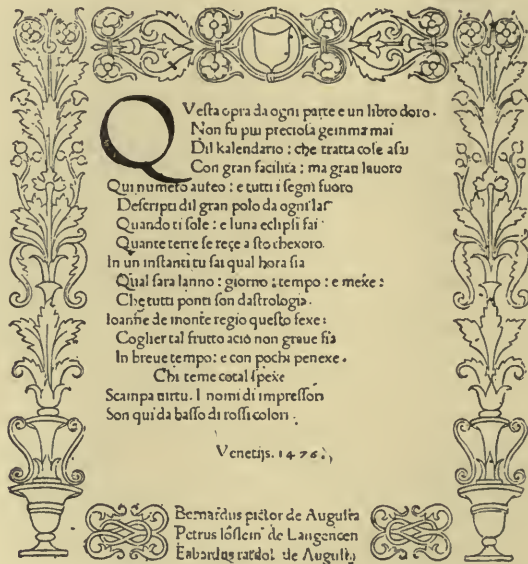 QVesta opra da ogni parte e un libro doro.
Non fu piu preciosa gemma mai
Dil kalendario: che tratta cose asai
Con gran facilita: ma gran lauoro
Qui numero aureo: e tutti i segni fuoro
Descripti dil gran polo da ogni lai
Quando ti sole: e luna eclipsi fai
Quante terre se rece a sto thexoro.
In un instanti tu sai qual hora sia
Qual sara lanno: giorno: tempo: e mexe:
Che tutti ponti son dastrologia.
Ioanne de monte regio questo fexe:
Coglier tal frutto acio non graue sia
In breue tempo: e con pochi penexe.
Chi teme cotal spexe
Scampa uirtu. I nomi di impressori
Son qui da basso di rossi colori.
Venetijs. 1476.
Bernardus pictor de Augusta
Petrus löslein de Langencen
Erhardus ratdolt de Augusta